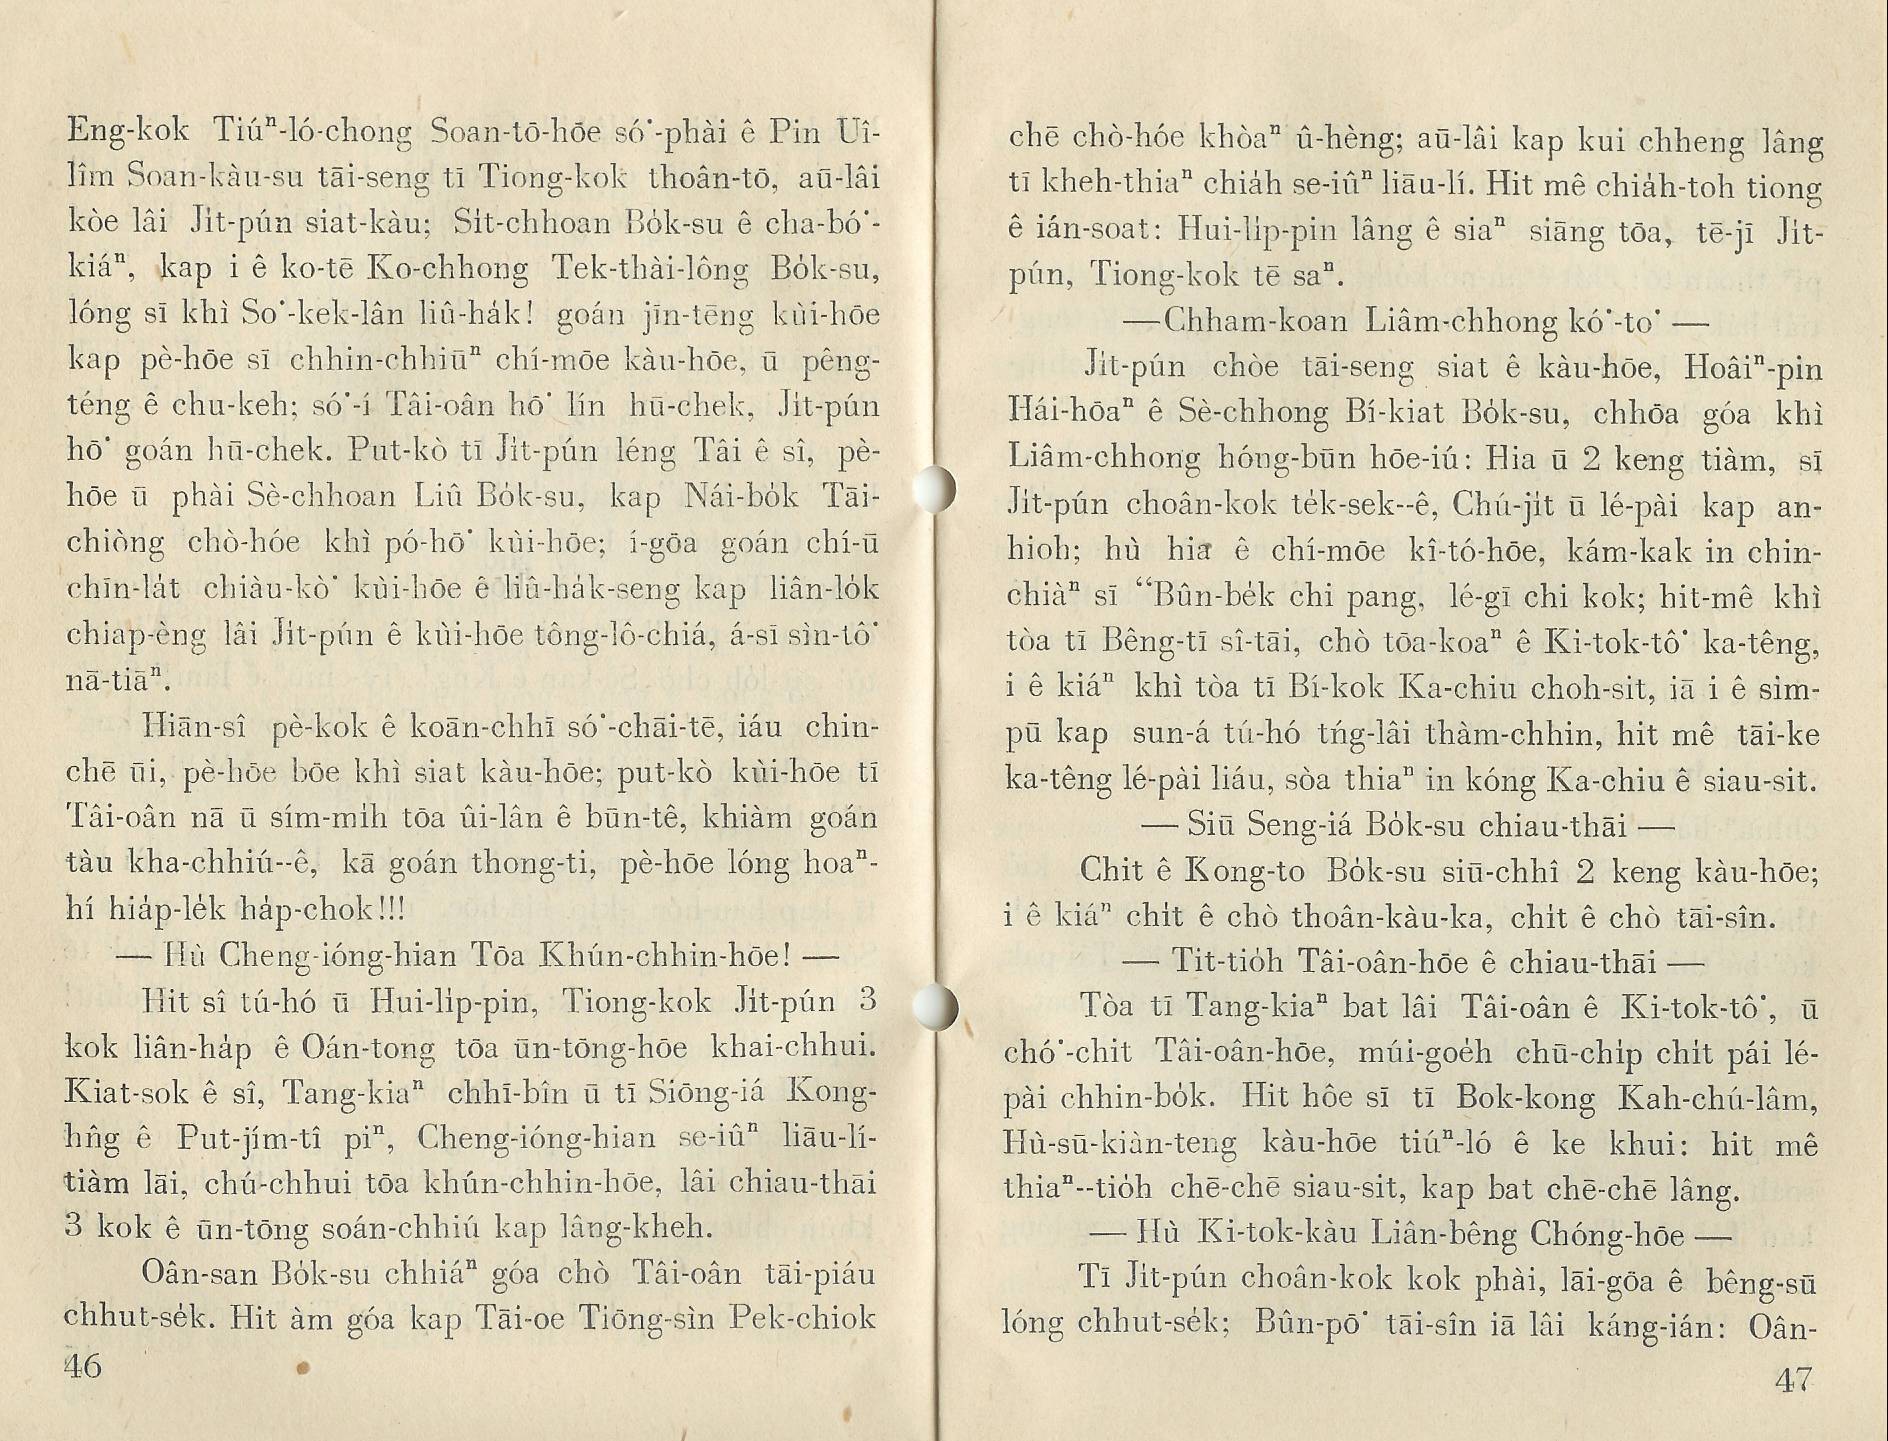 Eng-kok Tiúⁿ-ló-chong Soan-tō-hōe só͘-phài ê Pin Uî-
lîm Soan-kàu-su tāi-seng tī Tiong-kok thoân-tō, aū-lâi
kòe lâi Ji̍t-pún siat-kàu; Si̍t-chhoan Bo̍k-su ê cha-bó͘-
kiáⁿ, kap i ê ko-tē Ko-chhong Tek-thài-lông Bo̍k-su,
lóng sī khì So͘-kek-lân liû-ha̍k! goán jīn-tēng kùi-hōe
kap pè-hōe sī chhin-chhiūⁿ chí-mōe kàu-hōe, ū pêng-
téng ê chu-keh; só͘-í Tâi-oân hō͘ lín hū-chek, Ji̍t-pún
hō͘ goán hū-chek. Put-kò tī Ji̍t-pún léng Tâi ê sî, pè-
hōe ū phài Sè-chhoan Liû Bo̍k-su, kap Nái-bo̍k Tāi-
chiòng chò-hóe khì pó-hō͘ kùi-hōe; í-gōa goán chí-ū
chīn-la̍t chiàu-kò͘ kùi-hōe ê liû-ha̍k-seng kap liân-lo̍k
chiap-èng lâi Ji̍t-pún ê kùi-hōe tông-lô-chiá, á-sī sìn-tô͘
nā-tiāⁿ.
Hiān-sî pè-kok ê koān-chhī só͘-chāi-tē, iáu chin-
chē ūi, pè-hōe bōe khì siat kàu-hōe; put-kò kùi-hōe tī
Tâi-oân nā ū sím-mi̍h tōa ûi-lân ê būn-tê, khiàm goán
tàu kha-chhiú--ê, kā goán thong-ti, pè-hōe lóng hoaⁿ-
hí hia̍p-le̍k ha̍p-chok!!!
— Hù Cheng-ióng-hian Tōa Khún-chhin-hōe! —
Hit sî tú-hó ū Hui-li̍p-pin, Tiong-kok Ji̍t-pún 3
kok liân-ha̍p ê Oán-tong tōa ūn-tōng-hōe khai-chhui.
Kiat-sok ê sî, Tang-kiaⁿ chhī-bîn ū tī Siōng-iá Kong-
hn̂g ê Put-jím-tî piⁿ, Cheng-ióng-hian se-iûⁿ liāu-lí-
tiàm lāi, chú-chhui tōa khún-chhin-hōe, lâi chiau-thāi
3 kok ê ūn-tōng soán-chhiú kap lâng-kheh.
Oân-san Bo̍k-su chhiáⁿ góa chò Tâi-oân tāi-piáu
chhut-se̍k. Hit àm góa kap Tāi-oe Tiōng-sìn Pek-chiok
46
chē chò-hóe khòaⁿ û-hèng; aū-lâi kap kui chheng lâng
tī kheh-thiaⁿ chia̍h se-iûⁿ liāu-lí. Hit mê chia̍h-toh tiong
ê ián-soat: Hui-li̍p-pin lâng ê siaⁿ siāng tōa, tē-jī Ji̍t-
pún, Tiong-kok tē saⁿ.
—Chham-koan Liâm-chhong kó͘-to͘ —
Ji̍t-pún chòe tāi-seng siat ê kàu-hōe, Hoâiⁿ-pin
Hái-hōaⁿ ê Sè-chhong Bí-kiat Bo̍k-su, chhōa góa khì
Liâm-chhong hóng-būn hōe-iú: Hia ū 2 keng tiàm, sī
Ji̍t-pún choân-kok te̍k-sek--ê, Chú-ji̍t ū lé-pài kap an-
hioh; hù hia ê chí-mōe kî-tó-hōe, kám-kak in chin-
chiàⁿ sī “Bûn-be̍k chi pang, lé-gī chi kok; hit-mê khì
tòa tī Bêng-tī sî-tāi, chò tōa-koaⁿ ê Ki-tok-tô͘ ka-têng,
i ê kiáⁿ khì tòa tī Bí-kok Ka-chiu choh-sit, iā i ê sim-
pū kap sun-á tú-hó tńg-lâi thàm-chhin, hit mê tāi-ke
ka-têng lé-pài liáu, sòa thiaⁿ in kóng Ka-chiu ê siau-sit.
— Siū Seng-iá Bo̍k-su chiau-thāi —
Chit ê Kong-to Bo̍k-su siū-chhî 2 keng kàu-hōe;
i ê kiáⁿ chi̍t ê chò thoân-kàu-ka, chi̍t ê chò tāi-sîn.
— Tit-tio̍h Tâi-oân-hōe ê chiau-thāi —
Tòa tī Tang-kiaⁿ bat lâi Tâi-oân ê Ki-tok-tô͘, ū
chó͘-chit Tâi-oân-hōe, múi-goe̍h chū-chi̍p chi̍t pái lé-
pài chhin-bo̍k. Hit hôe sī tī Bok-kong Kah-chú-lâm,
Hù-sū-kiàn-teng kàu-hōe tiúⁿ-ló ê ke khui: hit mê
thiaⁿ--tio̍h chē-chē siau-sit, kap bat chē-chē lâng.
— Hù Ki-tok-kàu Liân-bêng Chóng-hōe —
Tī Ji̍t-pún choân-kok kok phài, lāi-gōa ê bêng-sū
lóng chhut-se̍k; Bûn-pō͘ tāi-sîn iā lâi káng-ián: Oân-
47